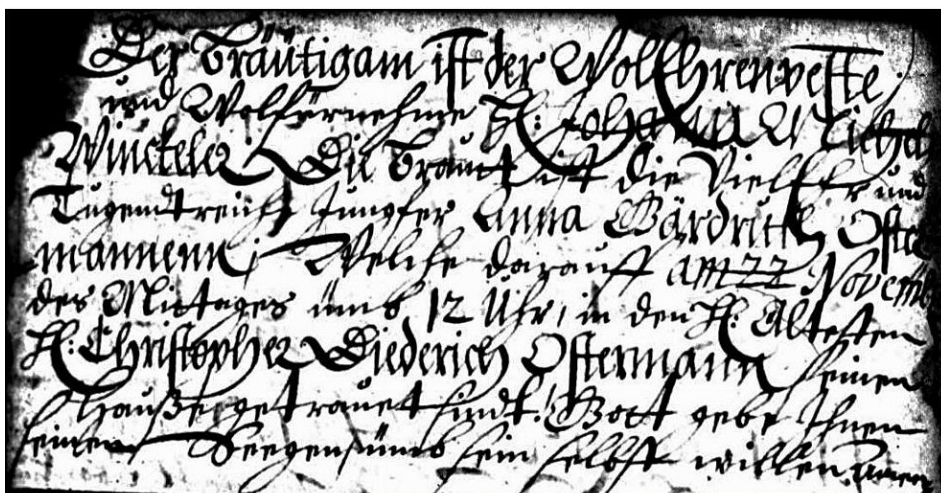 Der Bräütigam ist der WolEhrenveste
und Wolfürnehme H: Johann Michel
Winckeler Die Braut ist die VielEhr und
Tugendtreiche Jungfer Anna Gärdruth Oster
mannenn, Welche darauff am 22 Novemb
des Mittages umb 12 Uhr, in den H: Altesten
H: Christopher Diederich Ostermann seinen
Hauße getrauet sindt. Gott gebe Ihnen
seinen Seegen umb sein selbst willen Amen